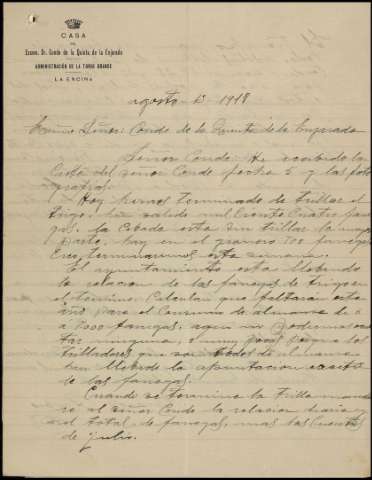 CASA
DEL
Excmo. Sr. Conde de la Quinta de la Enjarada
ADMINISTRACIÓN DE LA TORRE GRANDE
LA ENCINA
agosto 1918
Señor: Conde de la Quinta de la Enjarada
Señor Conde: He recibido la
Carta del señor Conde fecha 5 y las foto
grafias.
Hoy hemos terminado de trillar el
trigo, ha salido mil Ciento Cuatro fane
gas. la Cebada esta sin trillar la mayor
parte, hay en el granero 700 fanegas
Creo, terminaremos esta semana.
El ayuntamiento esta
la relacion de las fanegas de trigo en
el termino. Calculan que faltara este
año para el Consumo de
a 7000 fanegas, aqui no podremos
ninguna, los
trilladores que todos
han la apuntacion
de las fanegas.
Cuando se termine la trilla manda
ré al señor Conde la relacion diaria y
el total de fanegas, mas las Cuentas
de julio.